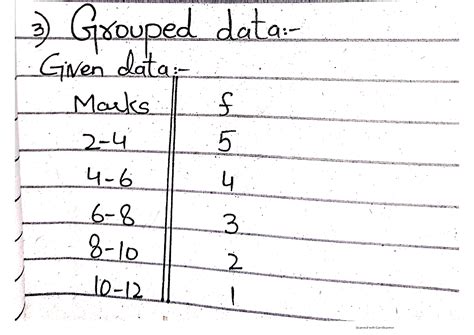 3) Grouped data:-
Given data:-
Marks f
2-4 5
4-6 4
6-8 3
8-10 2
10-12 1
Scanned with CamScanner